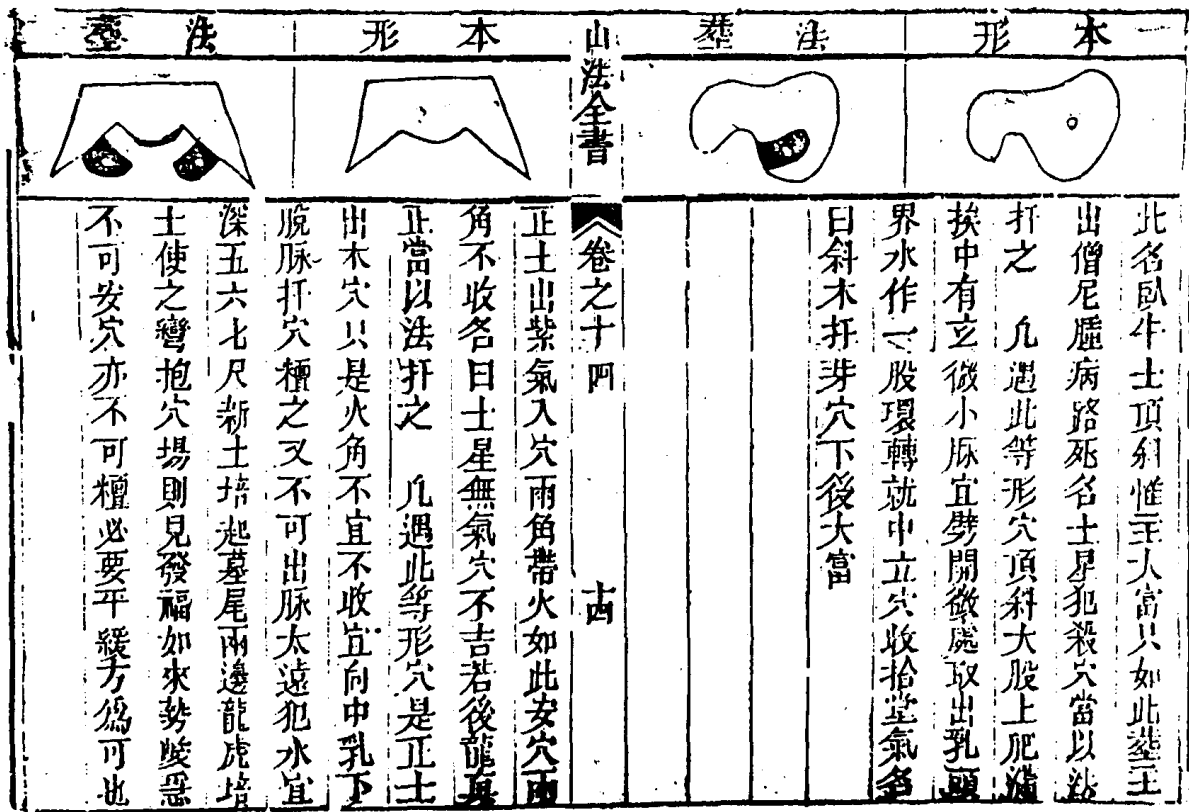 本形
葬法
此名臥牛土頂斜惟主大富只如此葬主
出僧尼腫病路死名土星犯殺穴當以法
扦之　凢遇此等形穴頂斜大股上肥滿
挨中有立微小脉宜劈開微處取出乳頭
界水作一股環轉就中立穴收拾堂氣名
曰斜木扦芽穴下後大富
山法全書
卷之十四
十四
本形
葬法
正土出紫氣入穴兩角帶火如此安穴兩
角不收名曰土星無氣穴不吉若後龍真
正當以法扦之　凢遇此等形穴是正土
出木穴只是火角不宜不收宜向中乳下
脫脉扦穴𥽷之又不可出脉太遠犯水宜
深五六七尺新土培起墓尾兩邊龍虎培
土使之彎抱穴場則見發福如來勢峻惡
不可安穴亦不可𥽷必要平緩方爲可也